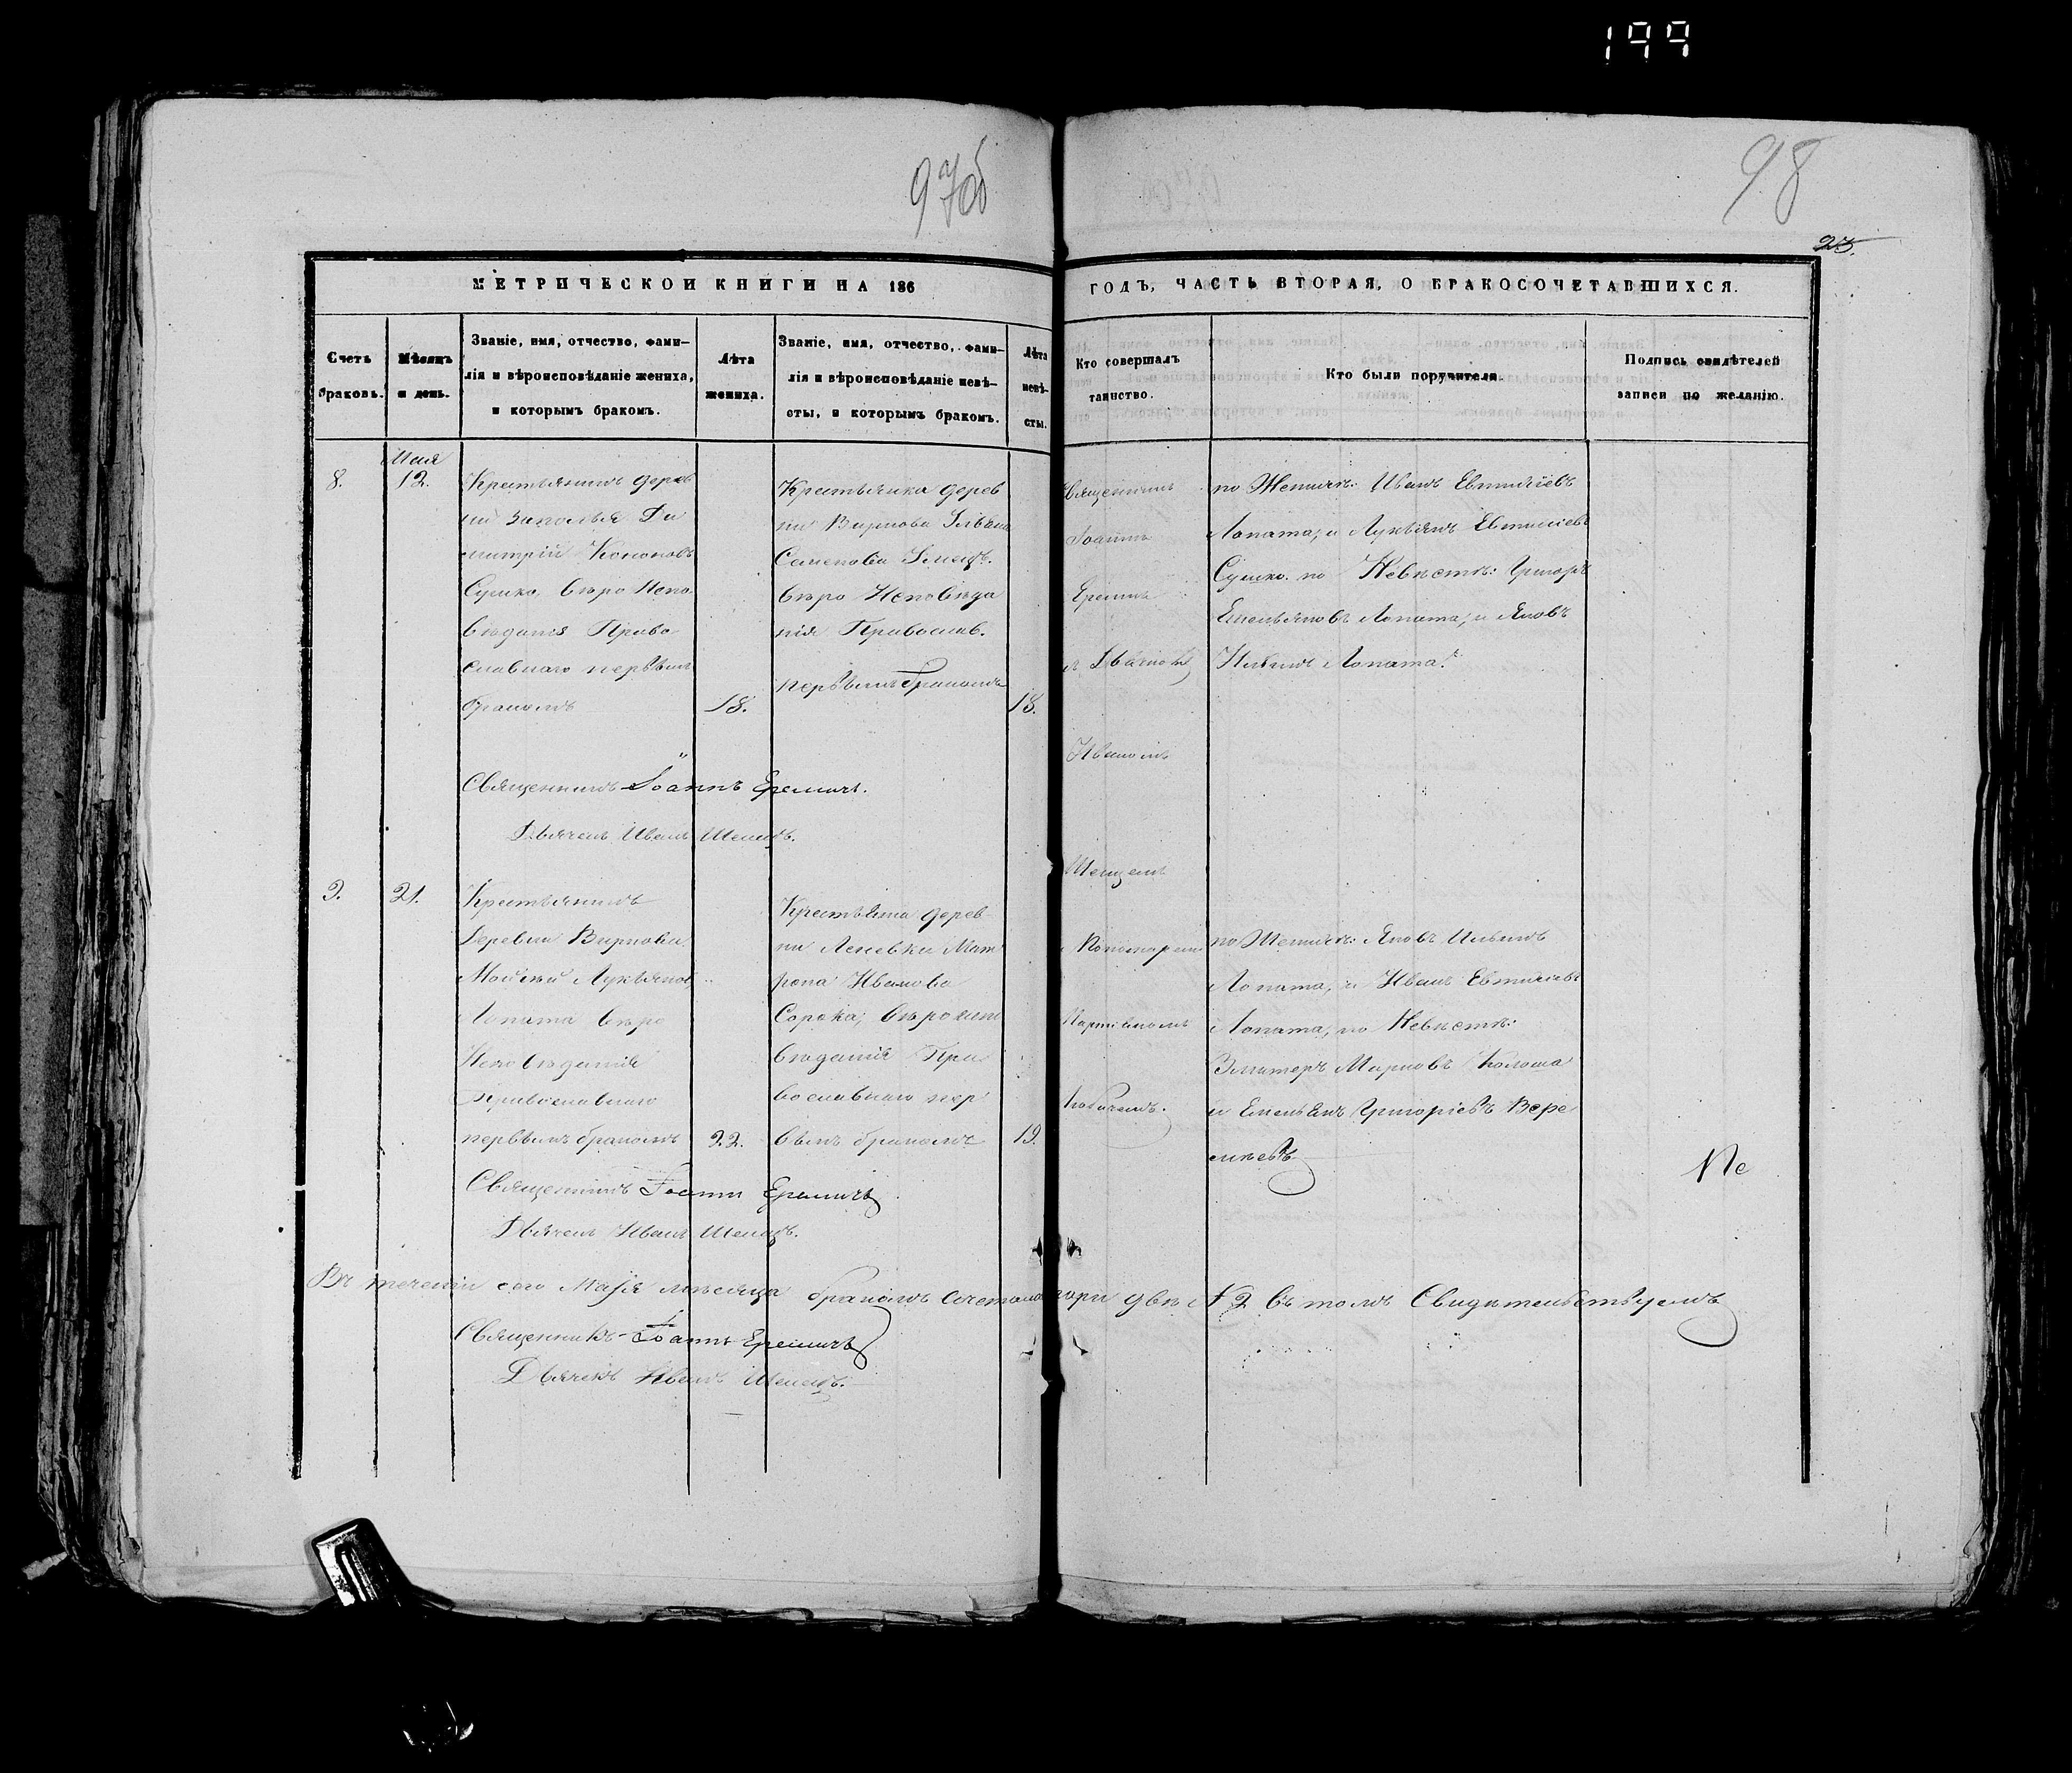 199
97об
98
25.
МЕТРИЧЕСКОЙ КНИГИ НА 186
ГОДЪ, ЧАСТЬ ВТОРАЯ, О БРАКОСОЧЕТАВШИХСЯ.
Счетъ браковъ.
Мѣсяцъ и день.
Званіе, имя, отчество, фами-
лія и вѣроисповѣданіе жениха,
и которымъ бракомъ.
Лѣта
жениха.
Званіе, имя, отчество, фами-
лія и вѣроисповѣданіе невѣ-
сты, и которымъ бракомъ.
Лѣта
невѣ-
сты.
Кто совершалъ
таинство.
Кто были поручители.
Подпись свидѣтелей
записи по желанію.
8.
Мая
12.
Крестьянинъ дерев
ни Заполья Ди
митрій Кононовъ
Сушко, вѣро Испо
вѣданія Право
славнаго первымъ
бракомъ
18.
Крестьянка дерев
ни Вирковъ
Семенова
вѣро Исповѣда
нія Православ.
первымъ бракомъ
18.
Священникъ
Іоаннъ
Еремичъ
съ Дьячкомъ
Иваномъ
Шемецемъ
Пономаремъ
по Женихѣ: Иванъ Евтихіевъ
Лопата, и Лукьянъ Евтихіевъ
Сушко. по Невѣстѣ: Григорій
Емельяновъ Лопата, и Яковъ
Ильинъ Лопата.
Священникъ Іоаннъ Еремичъ.
Дьячекъ Иванъ Шемецъ.
9.
21.
Крестьянинъ
Деревни Виркова
Моисей Лукьяновъ
Лопата вѣро
Исповѣданія
Православнаго
первымъ бракомъ
22.
Крестьянка дерев
ни Леневки Мат
рона Иванова
Сорока, вѣроиспо
вѣданія Пра
вославнаго пер
вымъ бракомъ
19.
по Женихѣ: Яковъ Ильинъ
Лопата, и Иванъ Евтихіевъ
Лопата, по Невѣстѣ:
Марковъ
и Емельянъ Григоріевъ Вере
Священникъ Іоаннъ Еремичъ
Дьячекъ Иванъ Шемецъ.
Въ теченіи сего Маія мѣсяца бракомъ сочетано пары двѣ № 2 въ томъ Свидѣтельствуемъ
Священникъ Іоаннъ Еремичъ
Дьячекъ Иванъ Шемецъ.